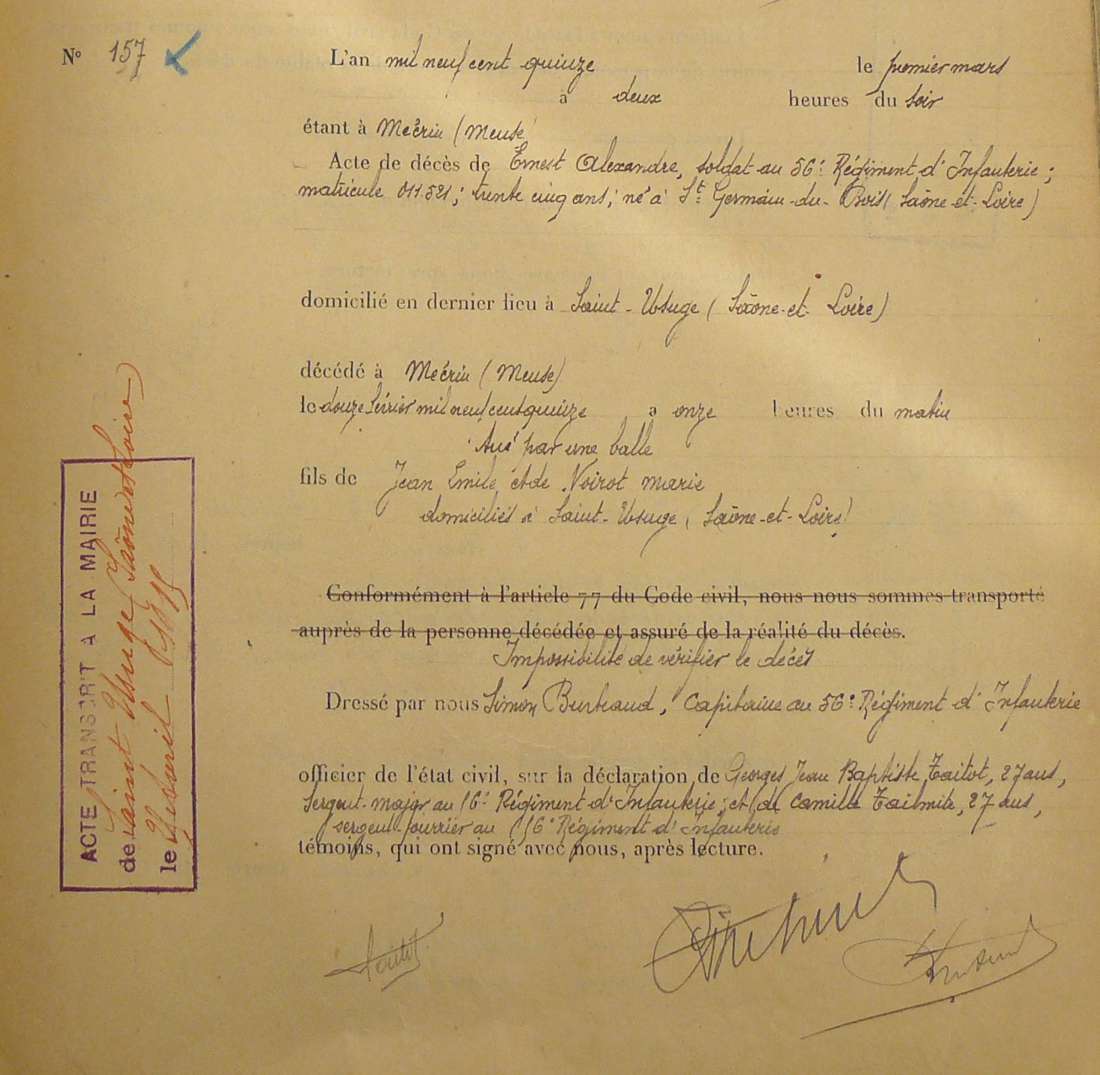 No 157
L'an mil neuf cent quinze le premier mars
à deux heures du soir
étant à Mécrin (Meuse)
Acte de décès de Ernest Alexandre, soldat au 56e Régiment d'Infanterie ;
matricule 011.521 ; trente cinq ans ; né à St Germain-du-Bois (Saône-et-Loire)
domicilié en dernier lieu à Saint-Usuge (Saône-et-Loire)
décédé à Mécrin (Meuse)
le douze février mil neuf cent quinze à onze heures du matin
Tué par une balle
fils de Jean Emile et de Voirot marie
domiciliés à Saint-Usuge, (Saône-et-Loire)
Conformément à l'article 77 du Code civil, nous nous sommes transporté
auprès de la personne décédée et assuré de la réalité du décès.
Impossibilité de vérifier le décès
Dressé par nous Simon Burtraud, Capitaine au 56e Régiment d'Infanterie
officier de l'état civil, sur la déclaration de Georges Jean Baptiste Taitot, 27 ans,
Sergent-major au 16e Régiment d'Infanterie ; et de Camille 27 ans,
sergent-fourrier au Régiment d'Infanterie
témoins, qui ont signé avec nous, après lecture.
Taitot
ACTE TRANSCRIT A LA MAIRIE
de Saint Usuge (Saône et Loire)
le